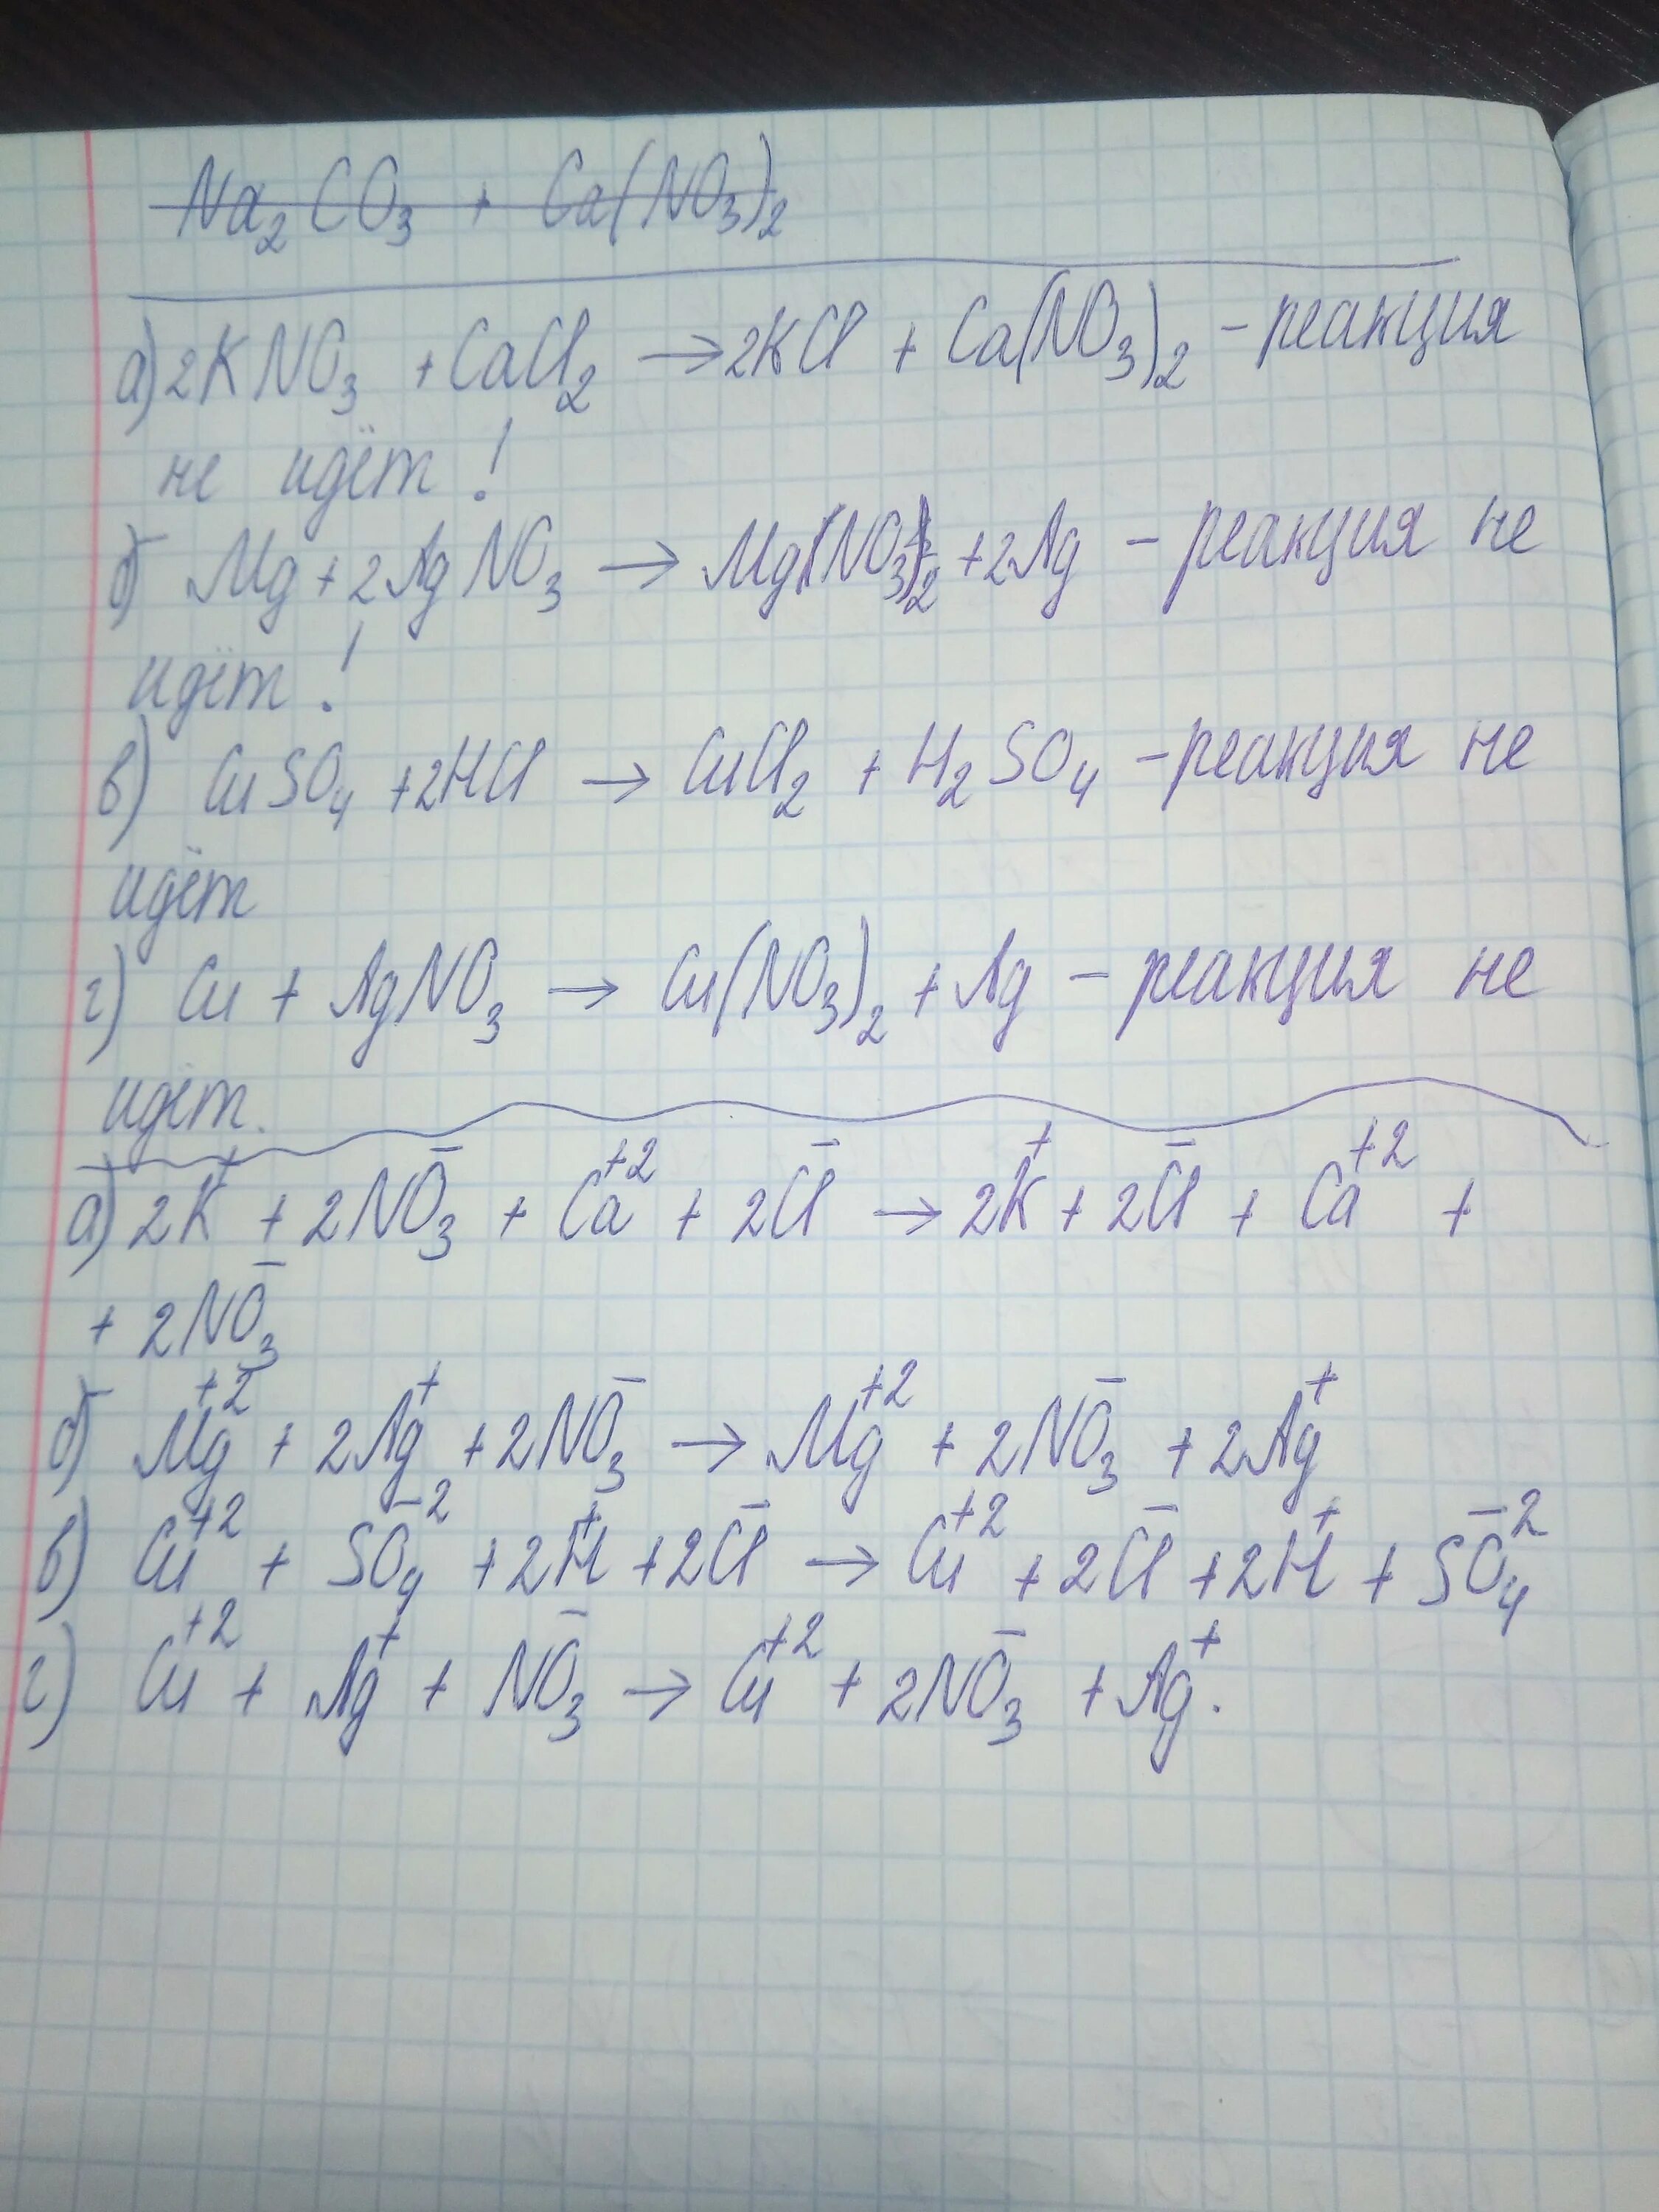 Na₂CO₃ + Ca(NO₃)₂
а) 2KNO₃ + CaCl₂ → 2KCl + Ca(NO₃)₂ – реакция
не идёт!
б) Mg + 2AgNO₃ → Mg(NO₃)₂ + 2Ag – реакция не
идёт!
в) CuSO₄ + 2HCl → CuCl₂ + H₂SO₄ – реакция не
идёт
г) Cu + AgNO₃ → Cu(NO₃)₂ + Ag – реакция не
идёт.
а) 2K⁺ + 2NO₃⁻ + Ca⁺² + 2Cl⁻ → 2K⁺ + 2Cl⁻ + Ca⁺² +
+ 2NO₃⁻
б) Mg⁺² + 2Ag⁺ + 2NO₃⁻ → Mg⁺² + 2NO₃⁻ + 2Ag⁺
в) Cu⁺² + SO₄⁻² + 2H⁺ + 2Cl⁻ → Cu⁺² + 2Cl⁻ + 2H⁺ + SO₄⁻²
г) Cu⁺² + Ag⁺ + NO₃⁻ → Cu⁺² + 2NO₃⁻ + Ag⁺.